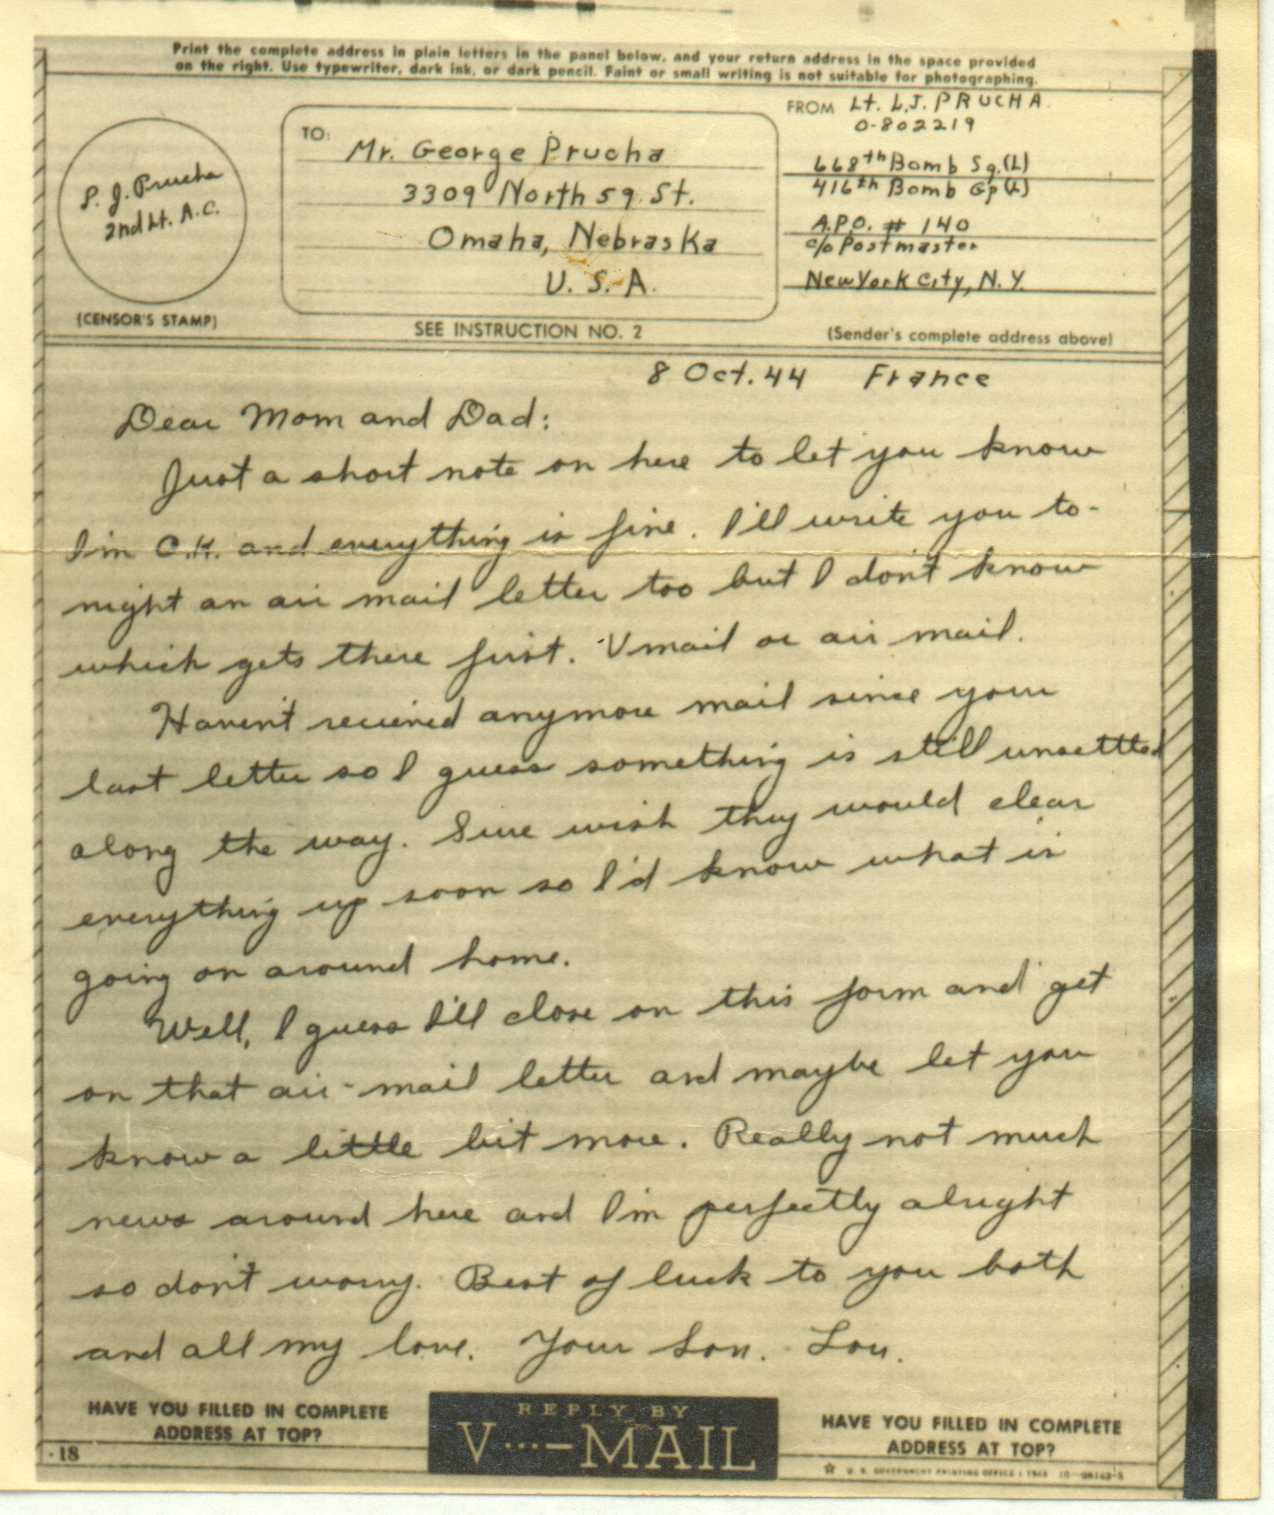 Print the complete address in plain letters in the panel below, and your return address in the space provided
on the right. Use typewriter, dark ink, or dark pencil. Faint or small writing is not suitable for photographing.
L. J. Prucha
2nd Lt. A.C.
(CENSOR'S STAMP)
TO:
Mr. George Prucha
3309 North 59 St.
Omaha, Nebraska
U. S. A.
SEE INSTRUCTION NO. 2
FROM Lt. L.J. PRUCHA
O-802219
668th Bomb Sq. (L)
416th Bomb Gp (L)
A.P.O. # 140
c/o Postmaster
New York City, N.Y.
(Sender's complete address above)
8 Oct. 44 France
Dear Mom and Dad:
Just a short note on here to let you know
I'm O.K. and everything is fine. I'll write you to-
night an air mail letter too but I don't know
which gets there first. V mail or air mail.
Haven't recieved anymore mail since your
last letter so I guess something is still unsettled
along the way. Sure wish they would clear
everything up soon so I'd know what is
going on around home.
Well, I guess I'll close on this form and get
on that air-mail letter and maybe let you
know a little bit more. Really not much
news around here and I'm perfectly alright
so don't worry. Best of luck to you both
and all my love. Your Son. Lou.
HAVE YOU FILLED IN COMPLETE
ADDRESS AT TOP?
REPLY BY
V···—MAIL
HAVE YOU FILLED IN COMPLETE
ADDRESS AT TOP?
-18
U. S. GOVERNMENT PRINTING OFFICE : 1943